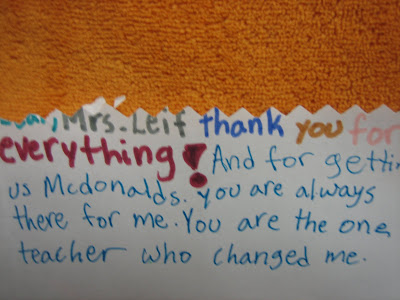 Dear, Mrs. Leif thank you for
everything! And for getti
us Mcdonalds. You are always
there for me. You are the one
teacher who changed me.